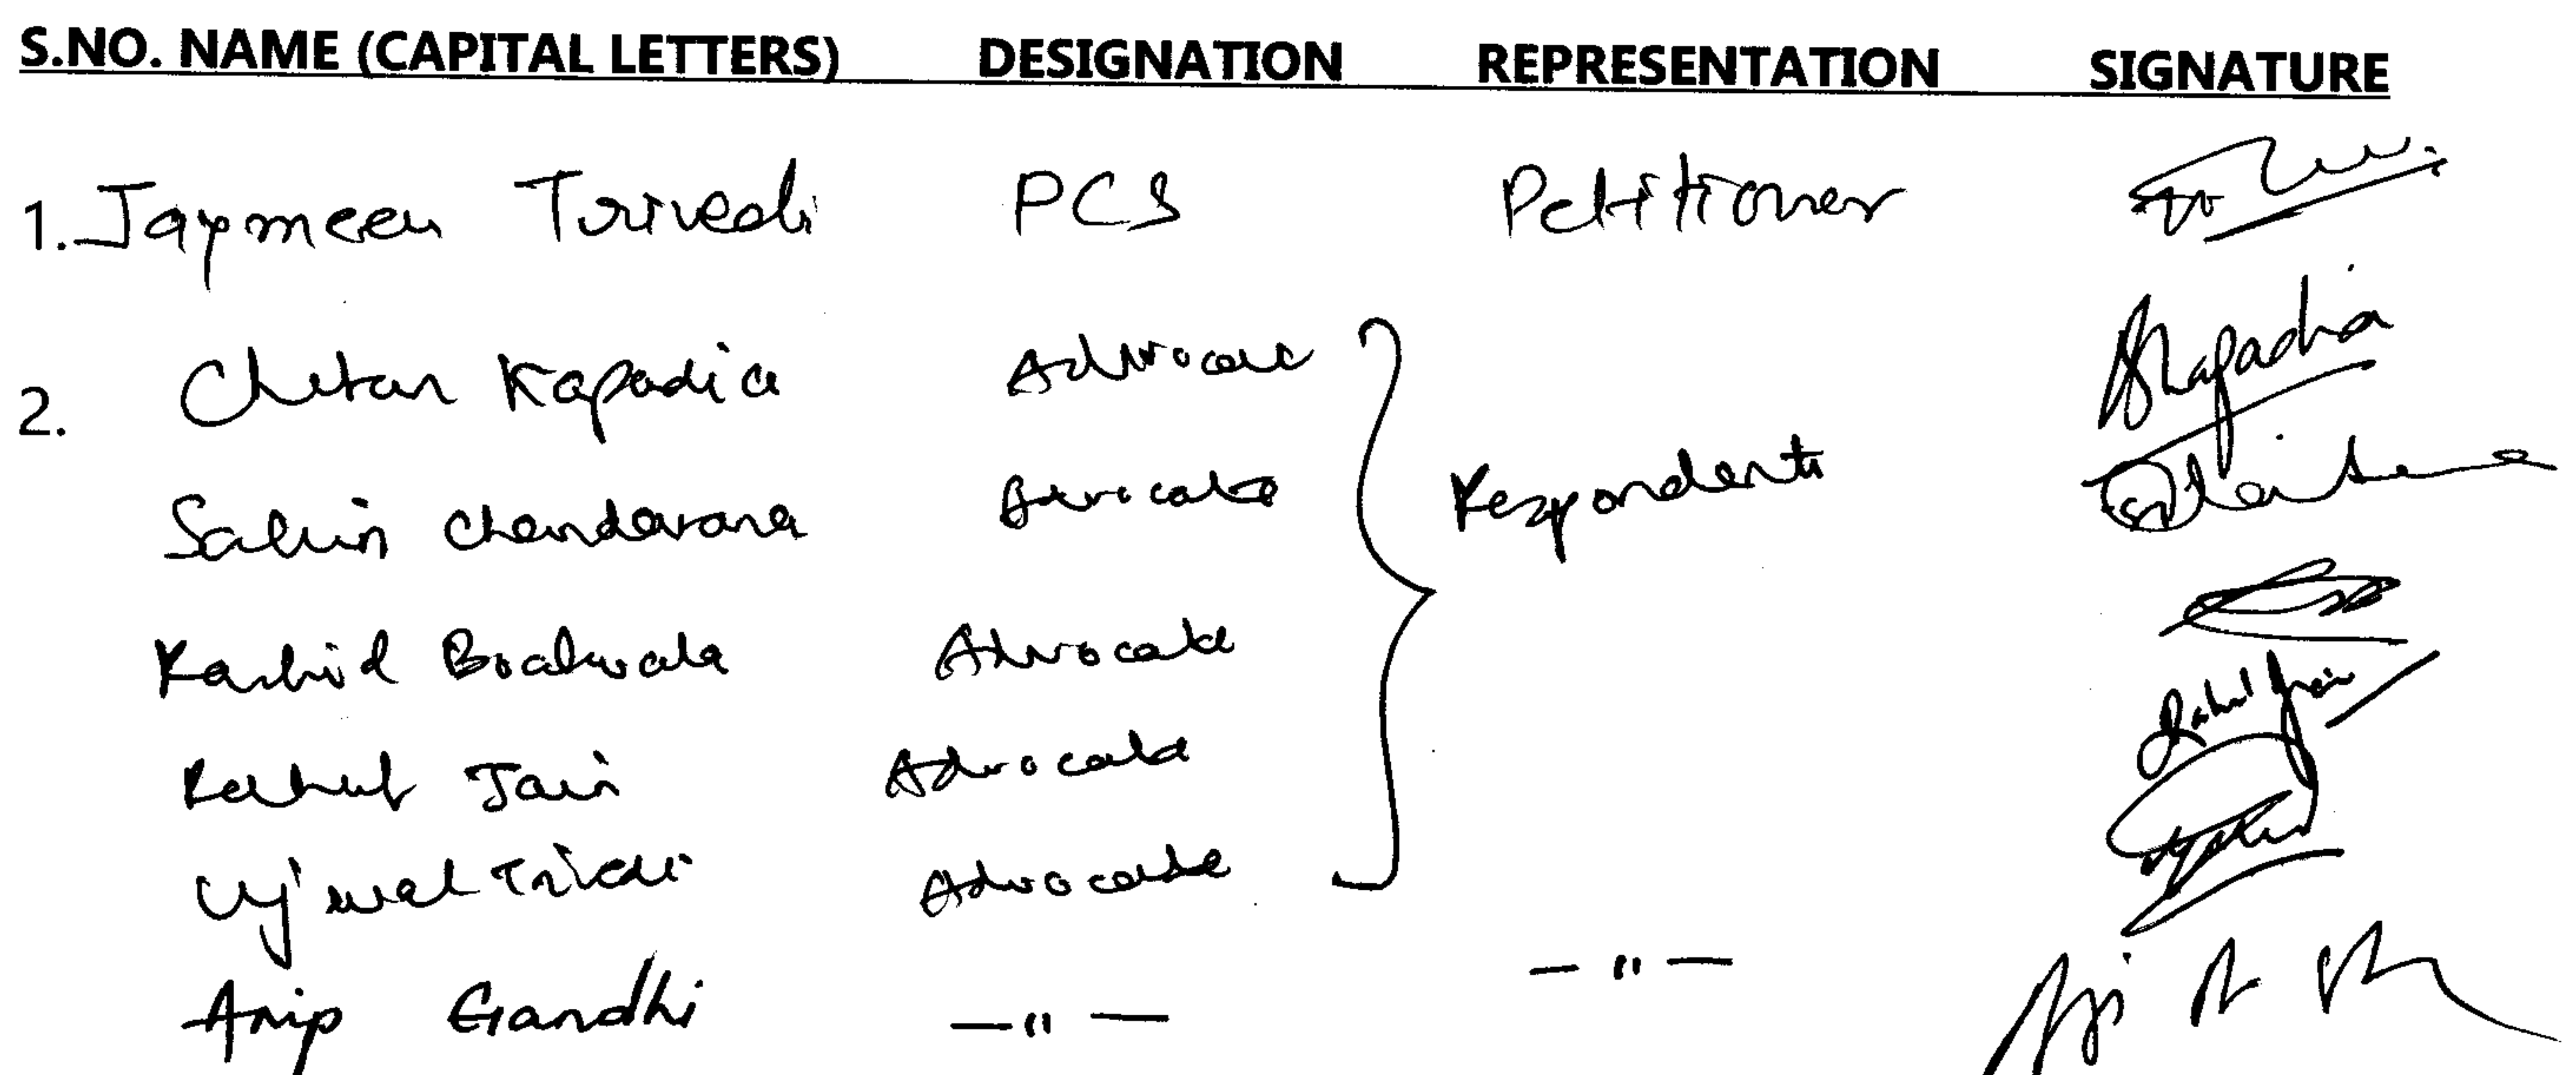 S.NO. NAME (CAPITAL LETTERS) DESIGNATION REPRESENTATION SIGNATURE
1. Jaymeen Trivedi PCS Petitioner
2. Chetan Kapadia Advocate Kapadia
Chandarana Advocate Respondents
Rashid Boatwala Advocate
Rahul Jain Advocate Rahul Jain
Ujwal Trivedi Advocate
Anip Gandhi —"— —"—